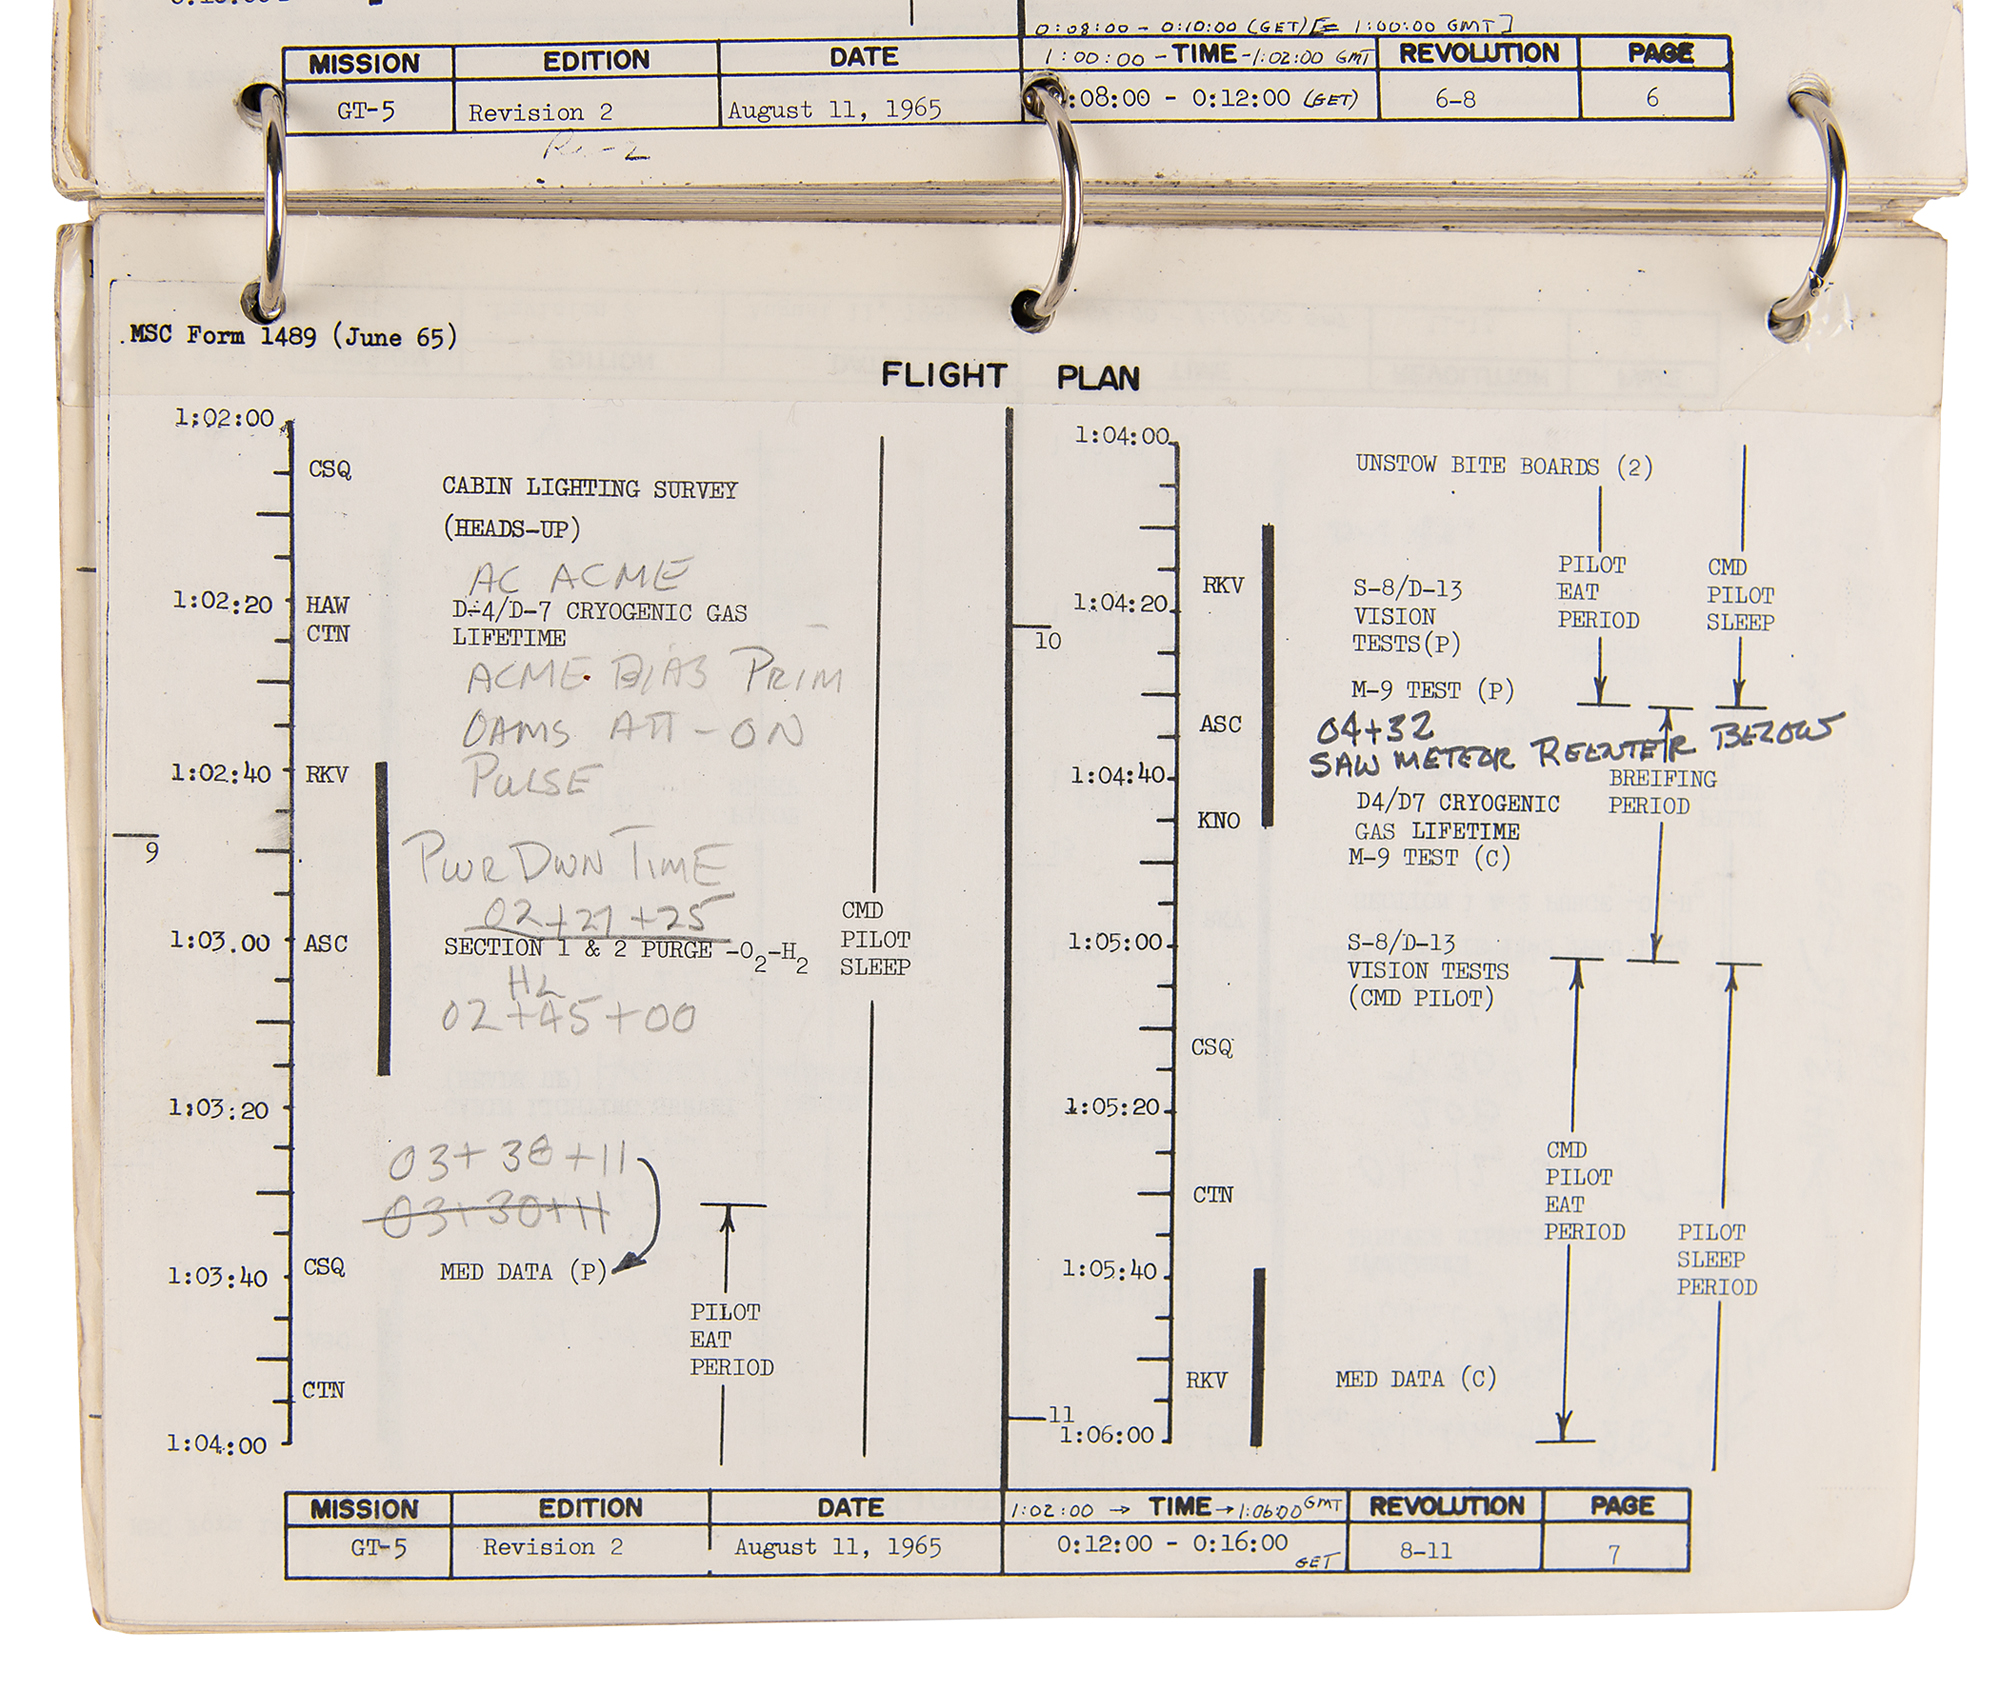 0:08:00 - 0:10:00 (GET) [= 1:00:00 GMT]
MISSION EDITION DATE 1:00:00 - TIME - 1:02:00 GMT REVOLUTION PAGE
GT-5 Revision 2 August 11, 1965 :08:00 - 0:12:00 (GET) 6-8 6
MSC Form 1489 (June 65)
FLIGHT PLAN
1:02:00
CSQ
CABIN LIGHTING SURVEY
(HEADS-UP)
AC ACME
1:02:20 HAW D-4/D-7 CRYOGENIC GAS
CTN LIFETIME
ACME BIAS PRIM
OAMS ATT - ON
1:02:40 RKV PULSE
9
PWR DWN TIME
02+27+25
1:03.00 ASC SECTION 1 & 2 PURGE -O2-H2
H2
02+45+00
CMD
PILOT
SLEEP
1:03:20
03+38+11
03+30+11
1:03:40 CSQ MED DATA (P)
PILOT
EAT
PERIOD
CTN
1:04:00
1:04:00
UNSTOW BITE BOARDS (2)
PILOT
EAT
PERIOD
CMD
PILOT
SLEEP
RKV
S-8/D-13
VISION
TESTS(P)
1:04:20
10
M-9 TEST (P)
ASC 04+32
SAW METEOR REENTER BELOW
1:04:40
BREIFING
PERIOD
KNO
D4/D7 CRYOGENIC
GAS LIFETIME
M-9 TEST (C)
1:05:00
S-8/D-13
VISION TESTS
(CMD PILOT)
CSQ
1:05:20
CTN
CMD
PILOT
EAT
PERIOD
PILOT
SLEEP
PERIOD
1:05:40
RKV MED DATA (C)
11
1:06:00
MISSION EDITION DATE 1:02:00 → TIME → 1:06:00 GMT REVOLUTION PAGE
GT-5 Revision 2 August 11, 1965 0:12:00 - 0:16:00 GET 8-11 7